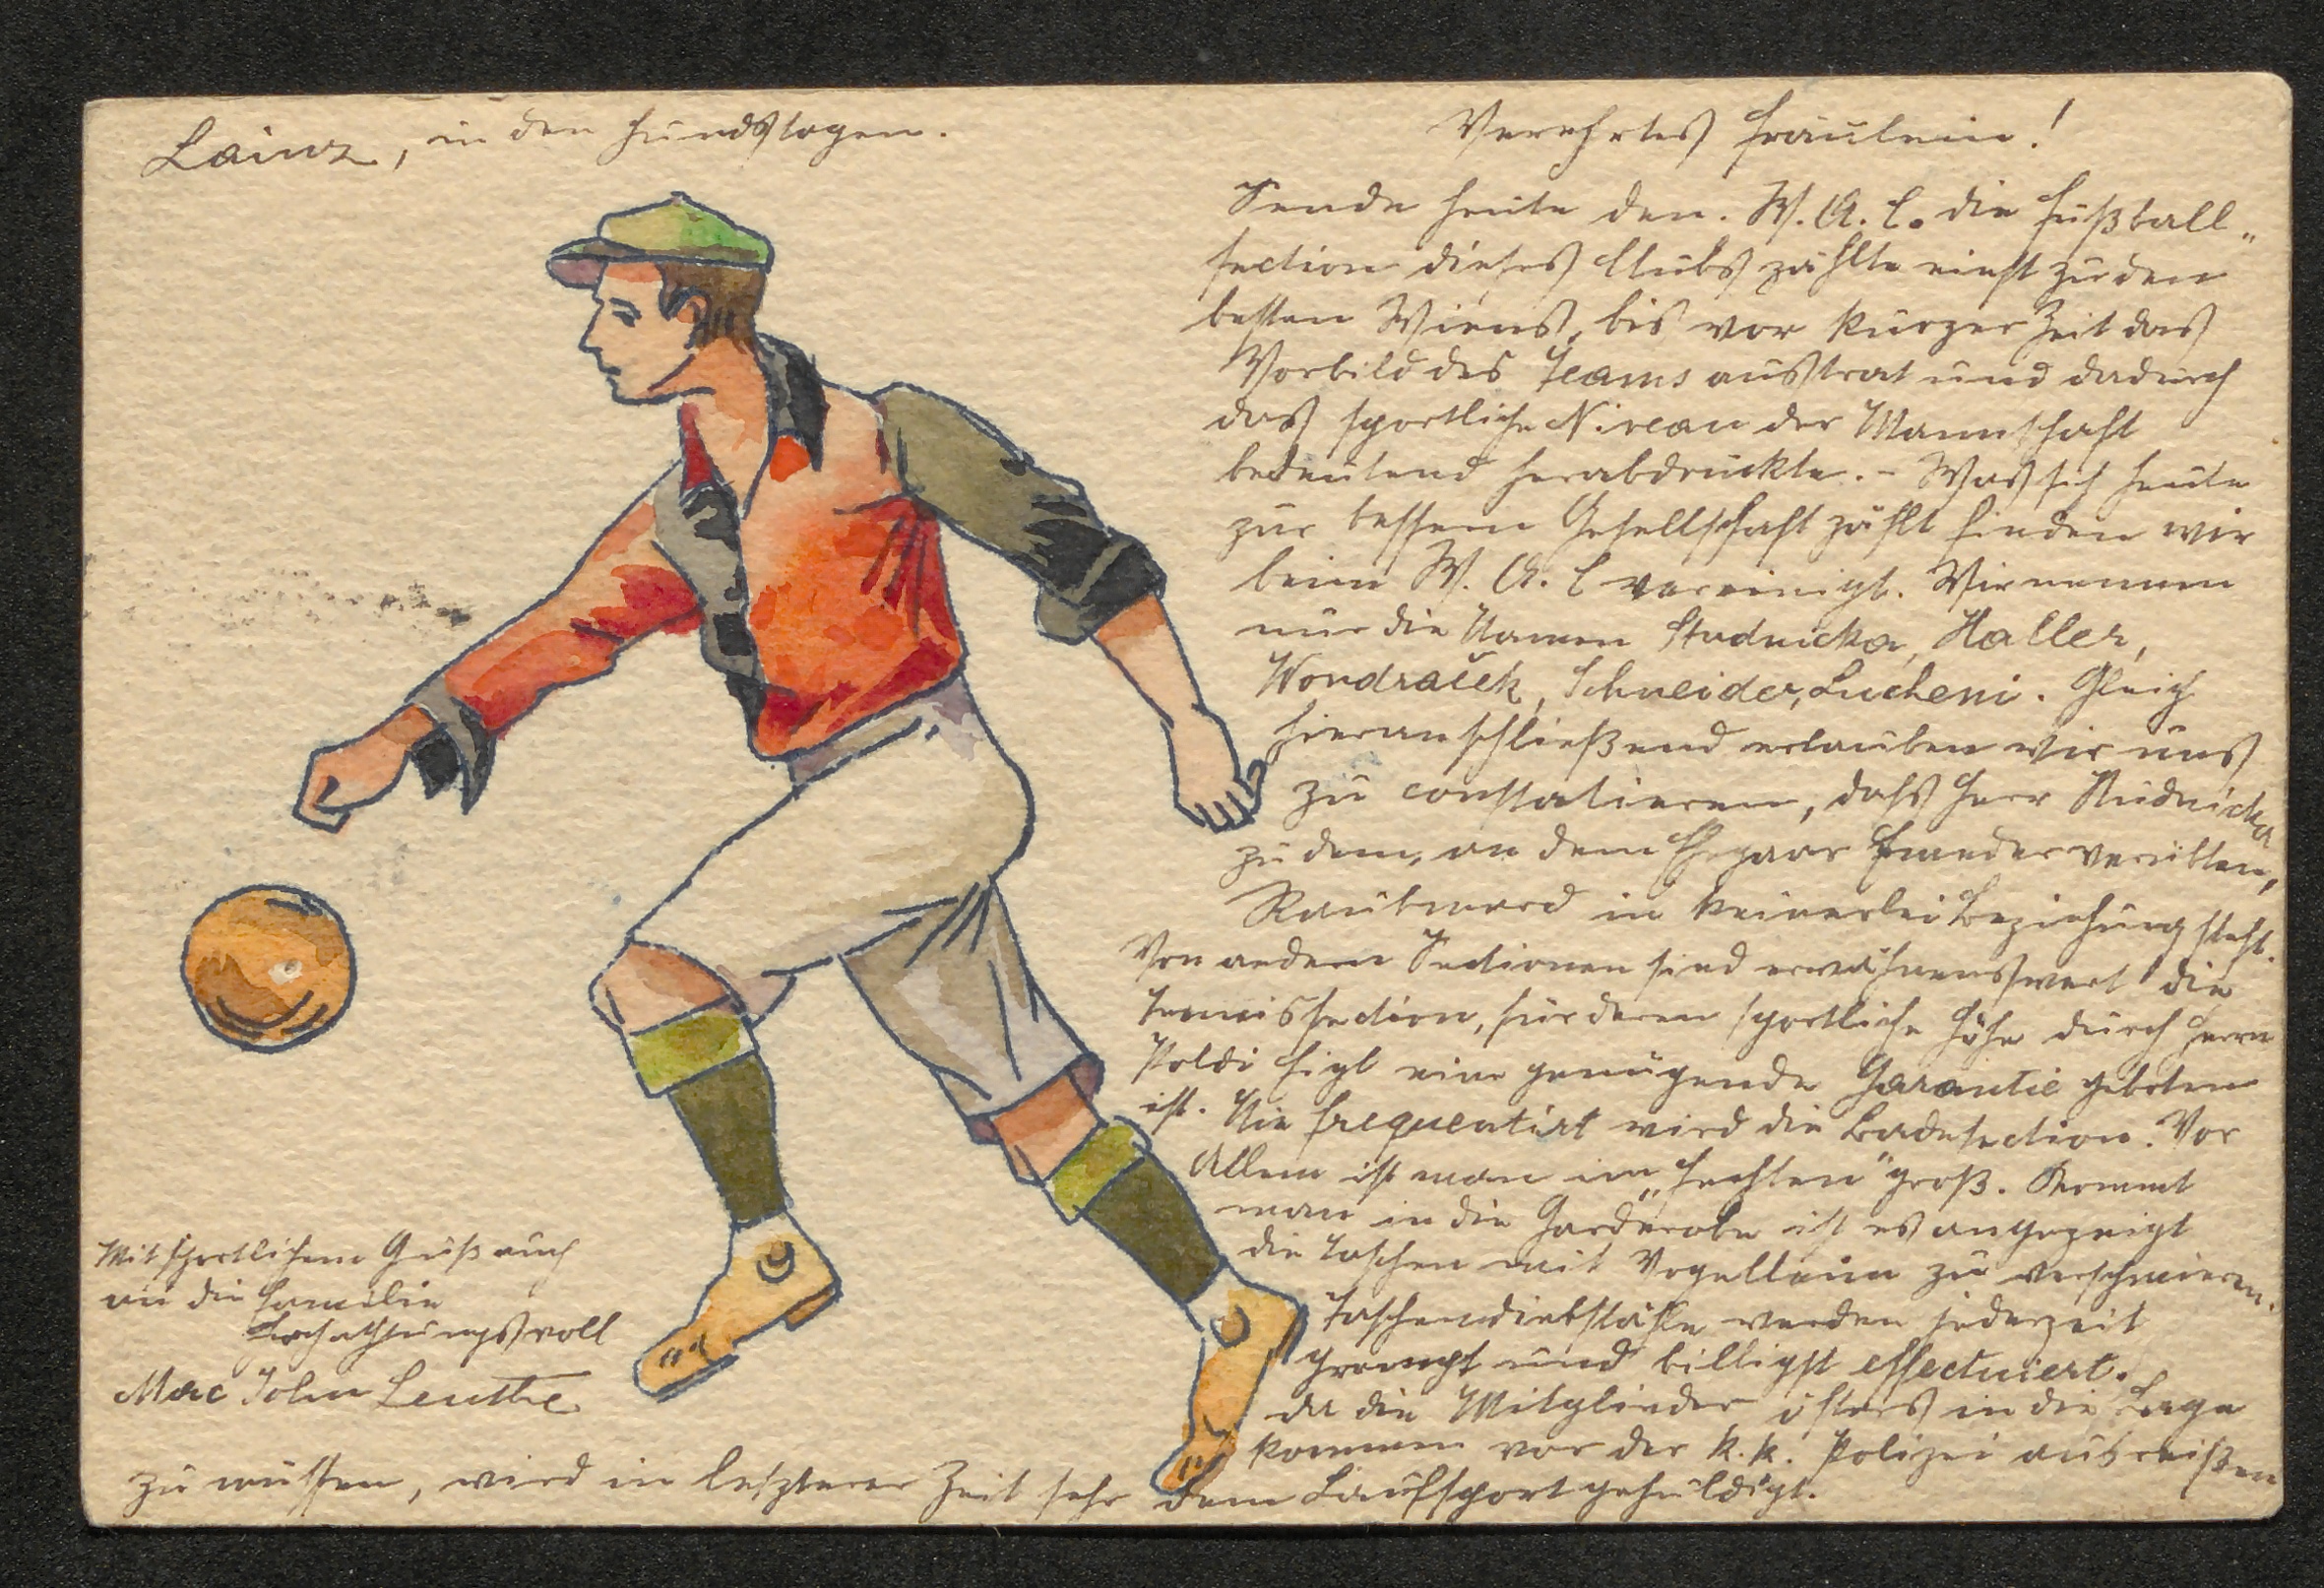 Lainz, in den Hundstagen.
Verehrtes Fräulein!
Sende heute den W. A. C. die Fußball„
section dieses Clubs zählte einst zu den
besten Wiens, bis vor kurzer Zeit das
Vorbild des Teams austrat und dadurch
das sportliche Niveau der Mannschaft
bedeutend herabdrückte. – Was sich heute
zur bessern Gesellschaft zählt finden wir
beim W. A. C vereinigt. Wir nennen
nur die Namen Studnicka, Haller,
Wondraček, Schneider, Lucheni. Gleich
hieranschließend erlauben wir uns
zu constatieren, dass Herr Studnicka
zu dem, an dem Ehepaar verübten,
Raubmord in keinerlei Beziehung steht.
Von andern Sectionen sind erwähnenswert die
Tennissection, für deren sportliche Höhe durch Herrn
Poldi Figl eine genügende Garantie geboten
ist. Nie frequentirt wird die Badesection. Vor
Allem ist man im „Fechten" groß. Kommt
man in die Garderobe ist es angezeigt
die Taschen mit Vogelleim zu verschmieren.
Taschendiebstähle werden jederzeit
prompt und billigst effectuiert.
da die Mitglieder öfters in die Lage
kommen vor der k.k. Polizei ausreißen
zu müssen, wird in letzterer Zeit sehr dem Laufsport gehuldigt.
Mit sportlichem Gruß auch
an die Familie
Hochachtungsvoll
Mac John Leuthe